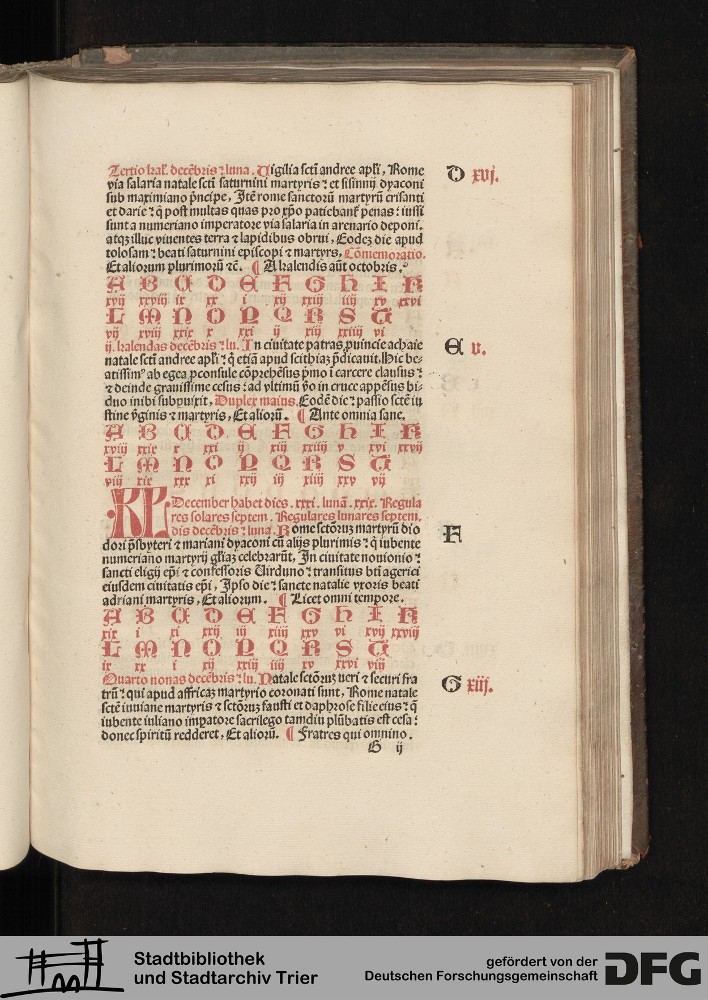 Tertio kal'. decẽbris ⁊ luna. Uigilia sctĩ andree apl'i, Rome
via salaria natale sctĩ saturnini martyris ⁊ et sisinnij dyaconi
sub maximiano p̃ncipe, Itẽ rome sanctorũ martyrũ crisanti
et darie ⁊ q̃ post multas quas pro xp̃o patiebant̃ penas ⁊ iussi
sunt a numeriano imperatore via salaria in arenario deponi.
atqꝫ illuc viuentes terra ⁊ lapidibus obrui, Eodeꝫ die apud
tolosam ⁊ beati saturnini episcopi ⁊ martyrs, Cõmemoratio.
Et aliorum plurimorũ ⁊c̃. ¶ A kalendis aũt octobris.
D xvj.
A B C D E F G H I K
xvij xxviij ix xx i xij xxiij iiij xv xxvi
L M N O P Q R S T
vij xviij xxix x xxi ij xiij xxiiij vi
ij. kalendas decẽbris ⁊ lu. In ciuitate patras ꝓuincie achaie
natale sctĩ andree apl'i ⁊ q̃ etiã apud scithias p̃dicauit. Hic be⸗
atissim⁹ ab egea ꝓconsule cõprehẽsus p̃mo ĩ carcere clausus ⁊
⁊ deinde grauissime cesus ⁊ ad vltimũ ṽo in cruce appẽsus bi⸗
duo inibi supuixit, Duplex maius. Eodẽ die ⁊ passio sctẽ iu
stine ṽginis ⁊ martyris, Et aliorũ. ¶ Ante omnia sane.
E v.
A B C D E F G H I K
xviij xxix x xxi ij xiij xxiiij v xvi xxvij
L M N O P Q R S T
viij xix xxx xi xxij iij xiiij xxv vij
KL December habet dies. xxxi. lunã. xxix. Regula
res solares septem. Regulares lunares septem.
dis decẽbris ⁊ luna. Rome sctõꝝ martyrũ dio
dori p̃sbyteri ⁊ mariani dyaconi cũ alijs plurimis ⁊ q̃ iubente
numeriano martyrij gl'iaꝫ celebrarũt, In ciuitate nouionio ⁊
sancti eligij ep̃i ⁊ confessoris Uirduno ⁊ transitus bt̃i agerici
eiusdem ciuitatis ep̃i, Ipso die ⁊ sancte natalie vxoris beati
adriani martyris, Et aliorum. ¶ Licet omni tempore.
F
A B C D E F G H I K
xix i xi xxij iij xiiij xxv vi xvij xxviij
L M N O P Q R S T
ix xx i xij xxiij iiij xv xxvi viij
Quarto nonas decẽbris ⁊ lu. Natale sctõꝝ ueri ⁊ securi fra
trũ ⁊ qui apud affricaꝫ martyrio coronati sunt, Rome natale
sctẽ iuuiane martyris ⁊ sctõꝝ fausti et daphrose filie eius ⁊ q̃
iubente iuliano imꝑatore sacrilego tamdiu plũbatis est cesa ⁊
donec spiritũ redderet, Et aliorũ. ¶ Fratres qui omnino.
G xiij.
G ij
Stadtbibliothek
und Stadtarchiv Trier
gefördert von der
Deutschen Forschungsgemeinschaft DFG